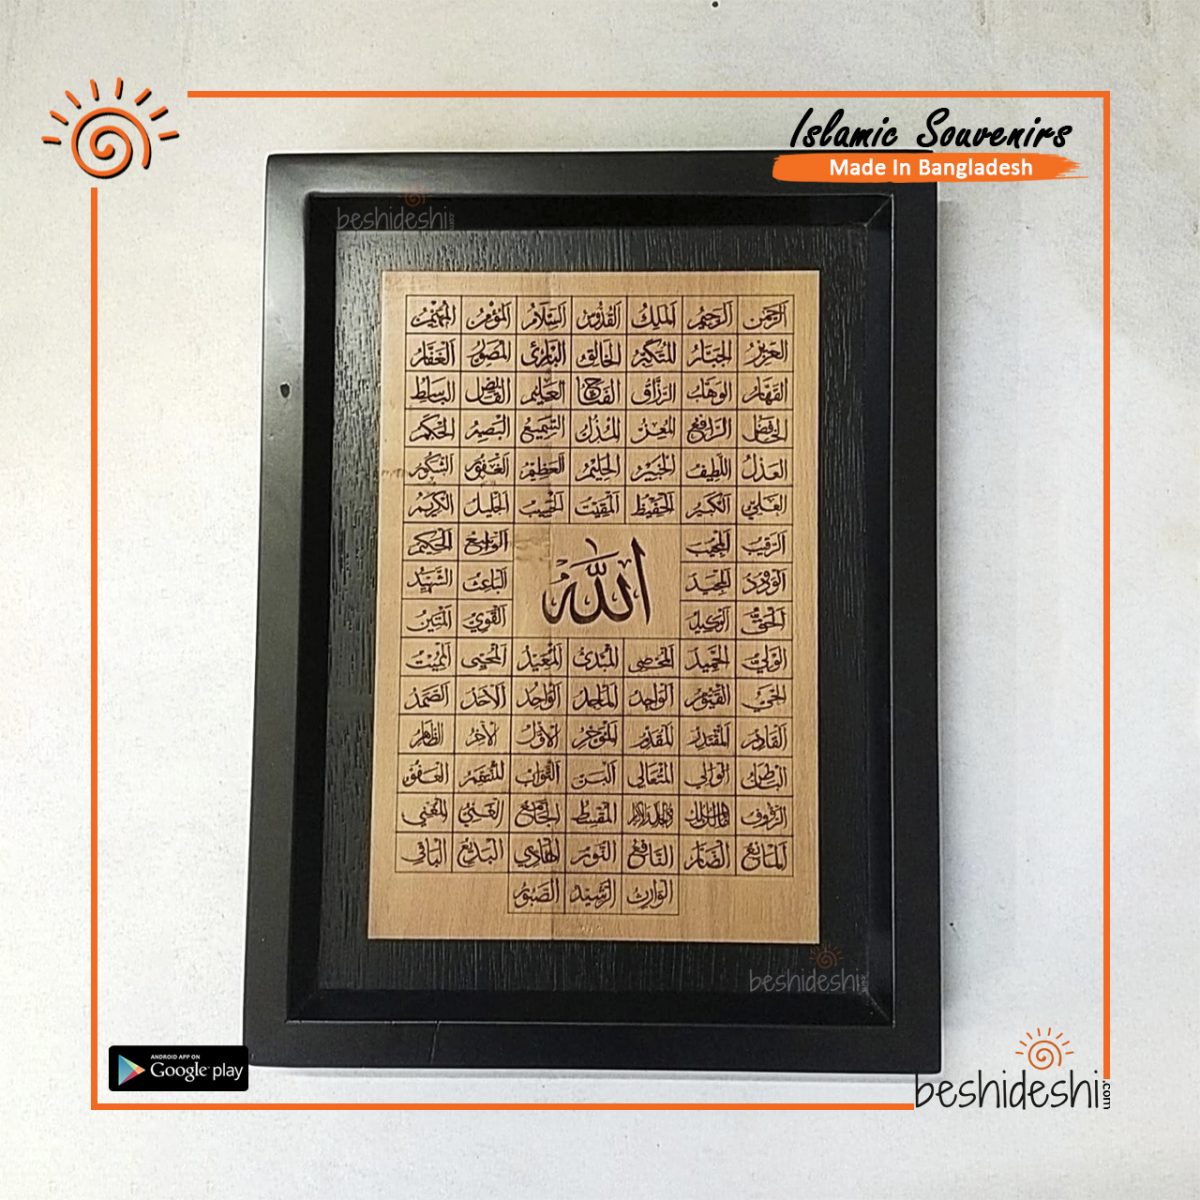 Islamic Souvenirs
Made In Bangladesh
beshideshi.com
الرحمن الرحيم الملك القدوس السلام المؤمن المهيمن
العزيز الجبار المتكبر الخالق البارئ المصور الغفار
القهار الوهاب الرزاق الفتاح العليم القابض الباسط
الخافض الرافع المعز المذل السميع البصير الحكم
العدل اللطيف الخبير الحليم العظيم الغفور الشكور
العلي الكبير الحفيظ المقيت الحسيب الجليل الكريم
الرقيب المجيب الواسع الحكيم
الودود المجيد الله الباعث الشهيد
الحق الوكيل القوي المتين
الولي الحميد المحصي المبدئ المعيد المحيي المميت
الحي القيوم الواجد الماجد الواحد الأحد الصمد
القادر المقتدر المقدم المؤخر الأول الآخر الظاهر
الباطن الوالي المتعالي البر التواب المنتقم العفو
الرؤوف مالك الملك ذو الجلال والإكرام المقسط الجامع الغني المغني
المانع الضار النافع النور الهادي البديع الباقي
الوارث الرشيد الصبور
beshideshi.com
ANDROID APP ON
Google play
beshideshi.com